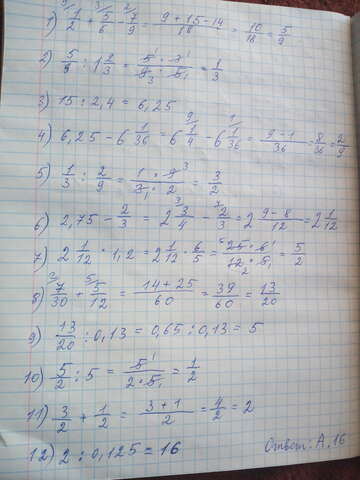 1) 1/2 + 5/6 - 7/9 = (9+15-14)/18 = 10/18 = 5/9
2) 5/9 : 1 2/3 = (5·3)/(9·5) = 1/3
3) 15 : 2,4 = 6,25
4) 6,25 - 6 1/36 = 6 1/4 - 6 1/36 = (9-1)/36 = 8/36 = 2/9
5) 1/3 : 2/9 = (1·9)/(3·2) = 3/2
6) 2,75 - 2/3 = 2 3/4 - 2/3 = 2 (9-8)/12 = 2 1/12
7) 2 1/12 · 1,2 = 2 1/12 · 6/5 = (25·6)/(12·5) = 5/2
8) 7/30 + 5/12 = (14+25)/60 = 39/60 = 13/20
9) 13/20 : 0,13 = 0,65 : 0,13 = 5
10) 5/2 : 5 = 5/(2·5) = 1/2
11) 3/2 + 1/2 = (3+1)/2 = 4/2 = 2
12) 2 : 0,125 = 16 Ответ: А. 16